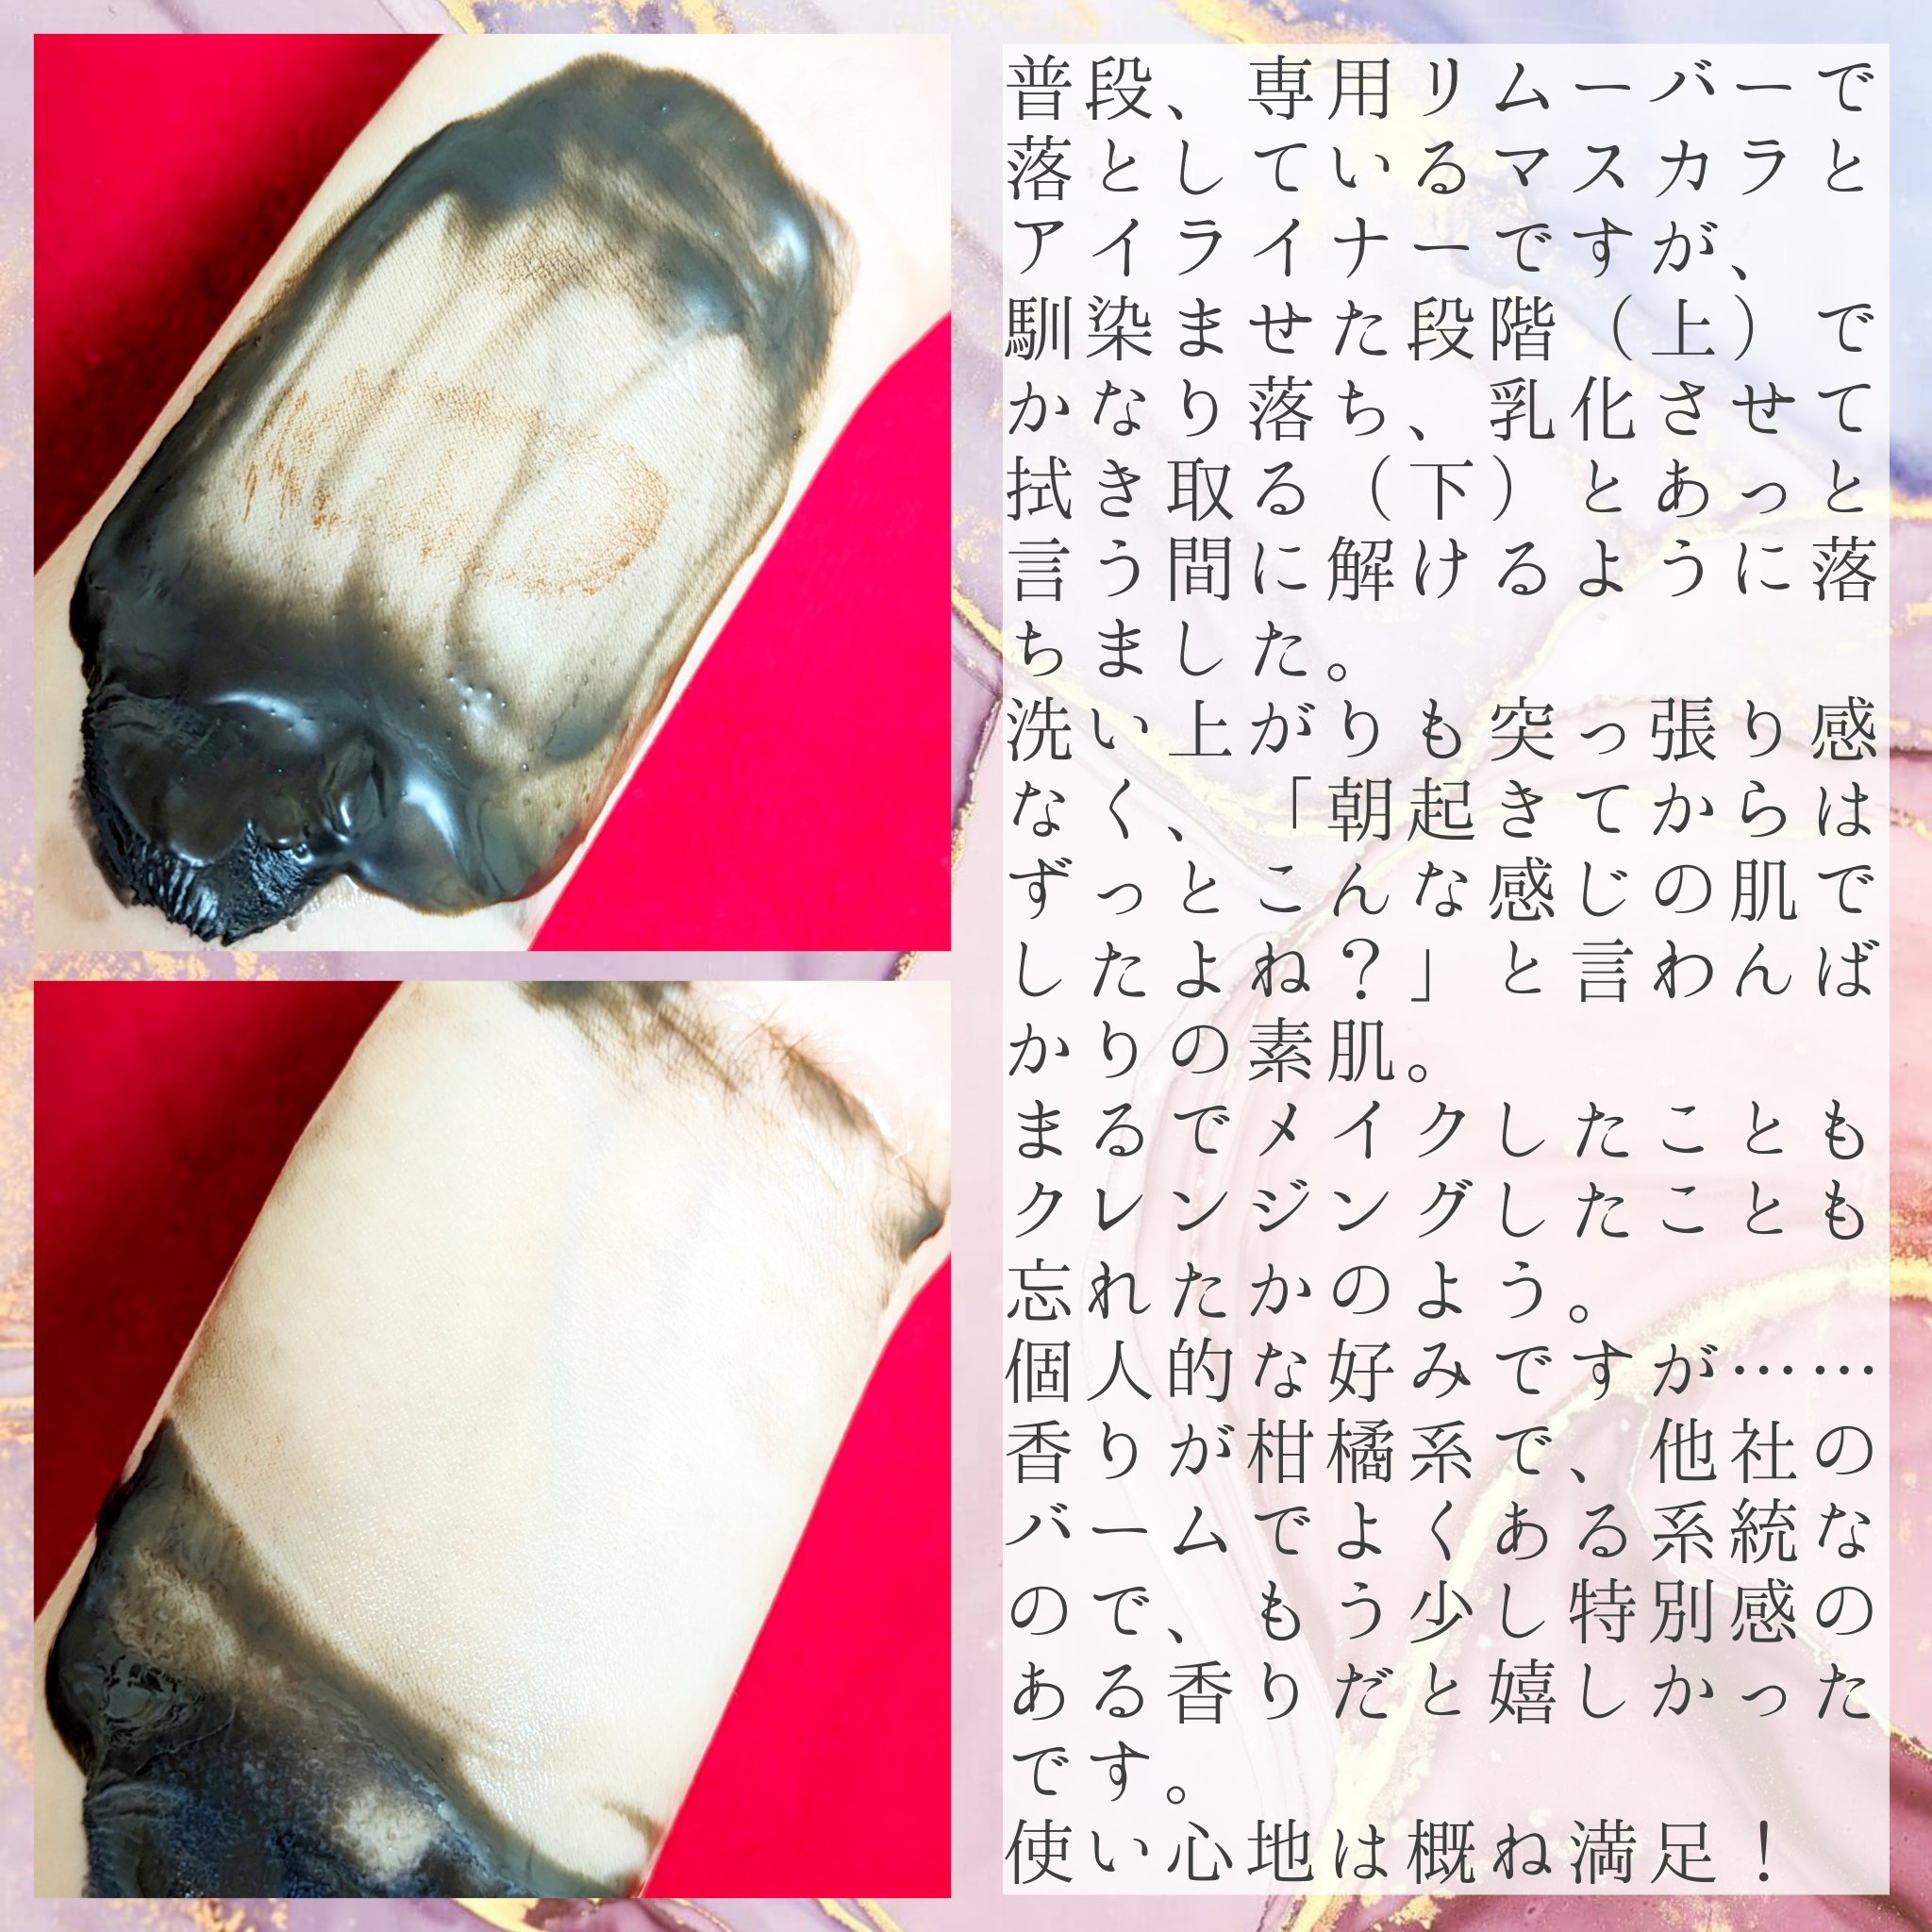 普段、専用リムーバーで
落としているマスカラと
アイライナーですが、
馴染ませた段階（上）で
かなり落ち、乳化させて
拭き取る（下）とあっと
言う間に解けるように落
ちました。
洗い上がりも突っ張り感
なく、「朝起きてからは
ずっとこんな感じの肌で
したよね？」と言わんば
かりの素肌。
まるでメイクしたことも
クレンジングしたことも
忘れたかのよう。
個人的な好みですが……
香りが柑橘系で、他社の
バームでよくある系統な
ので、もう少し特別感の
ある香りだと嬉しかった
です。
使い心地は概ね満足！